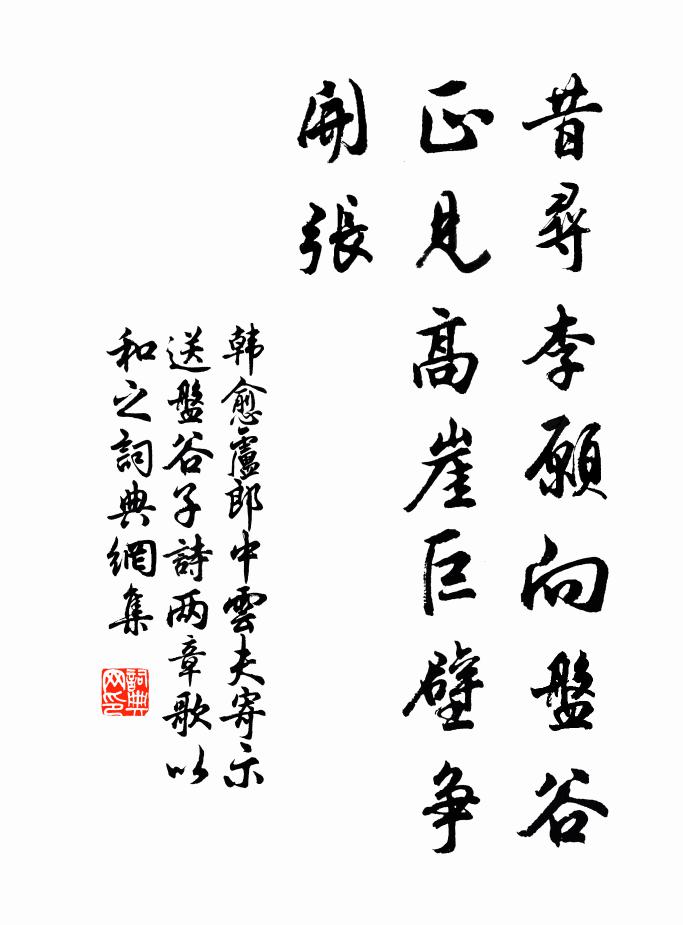 昔尋李願向盤谷
正見高崖巨壁争
開張
韩愈盧郎中雲夫寄示
送盤谷子詩两章歌以
和之詞典網集
詞典
网印